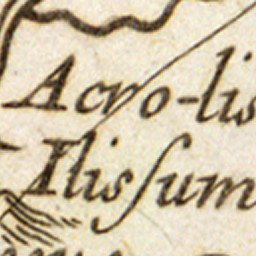 Acro-lis
Ilisſum